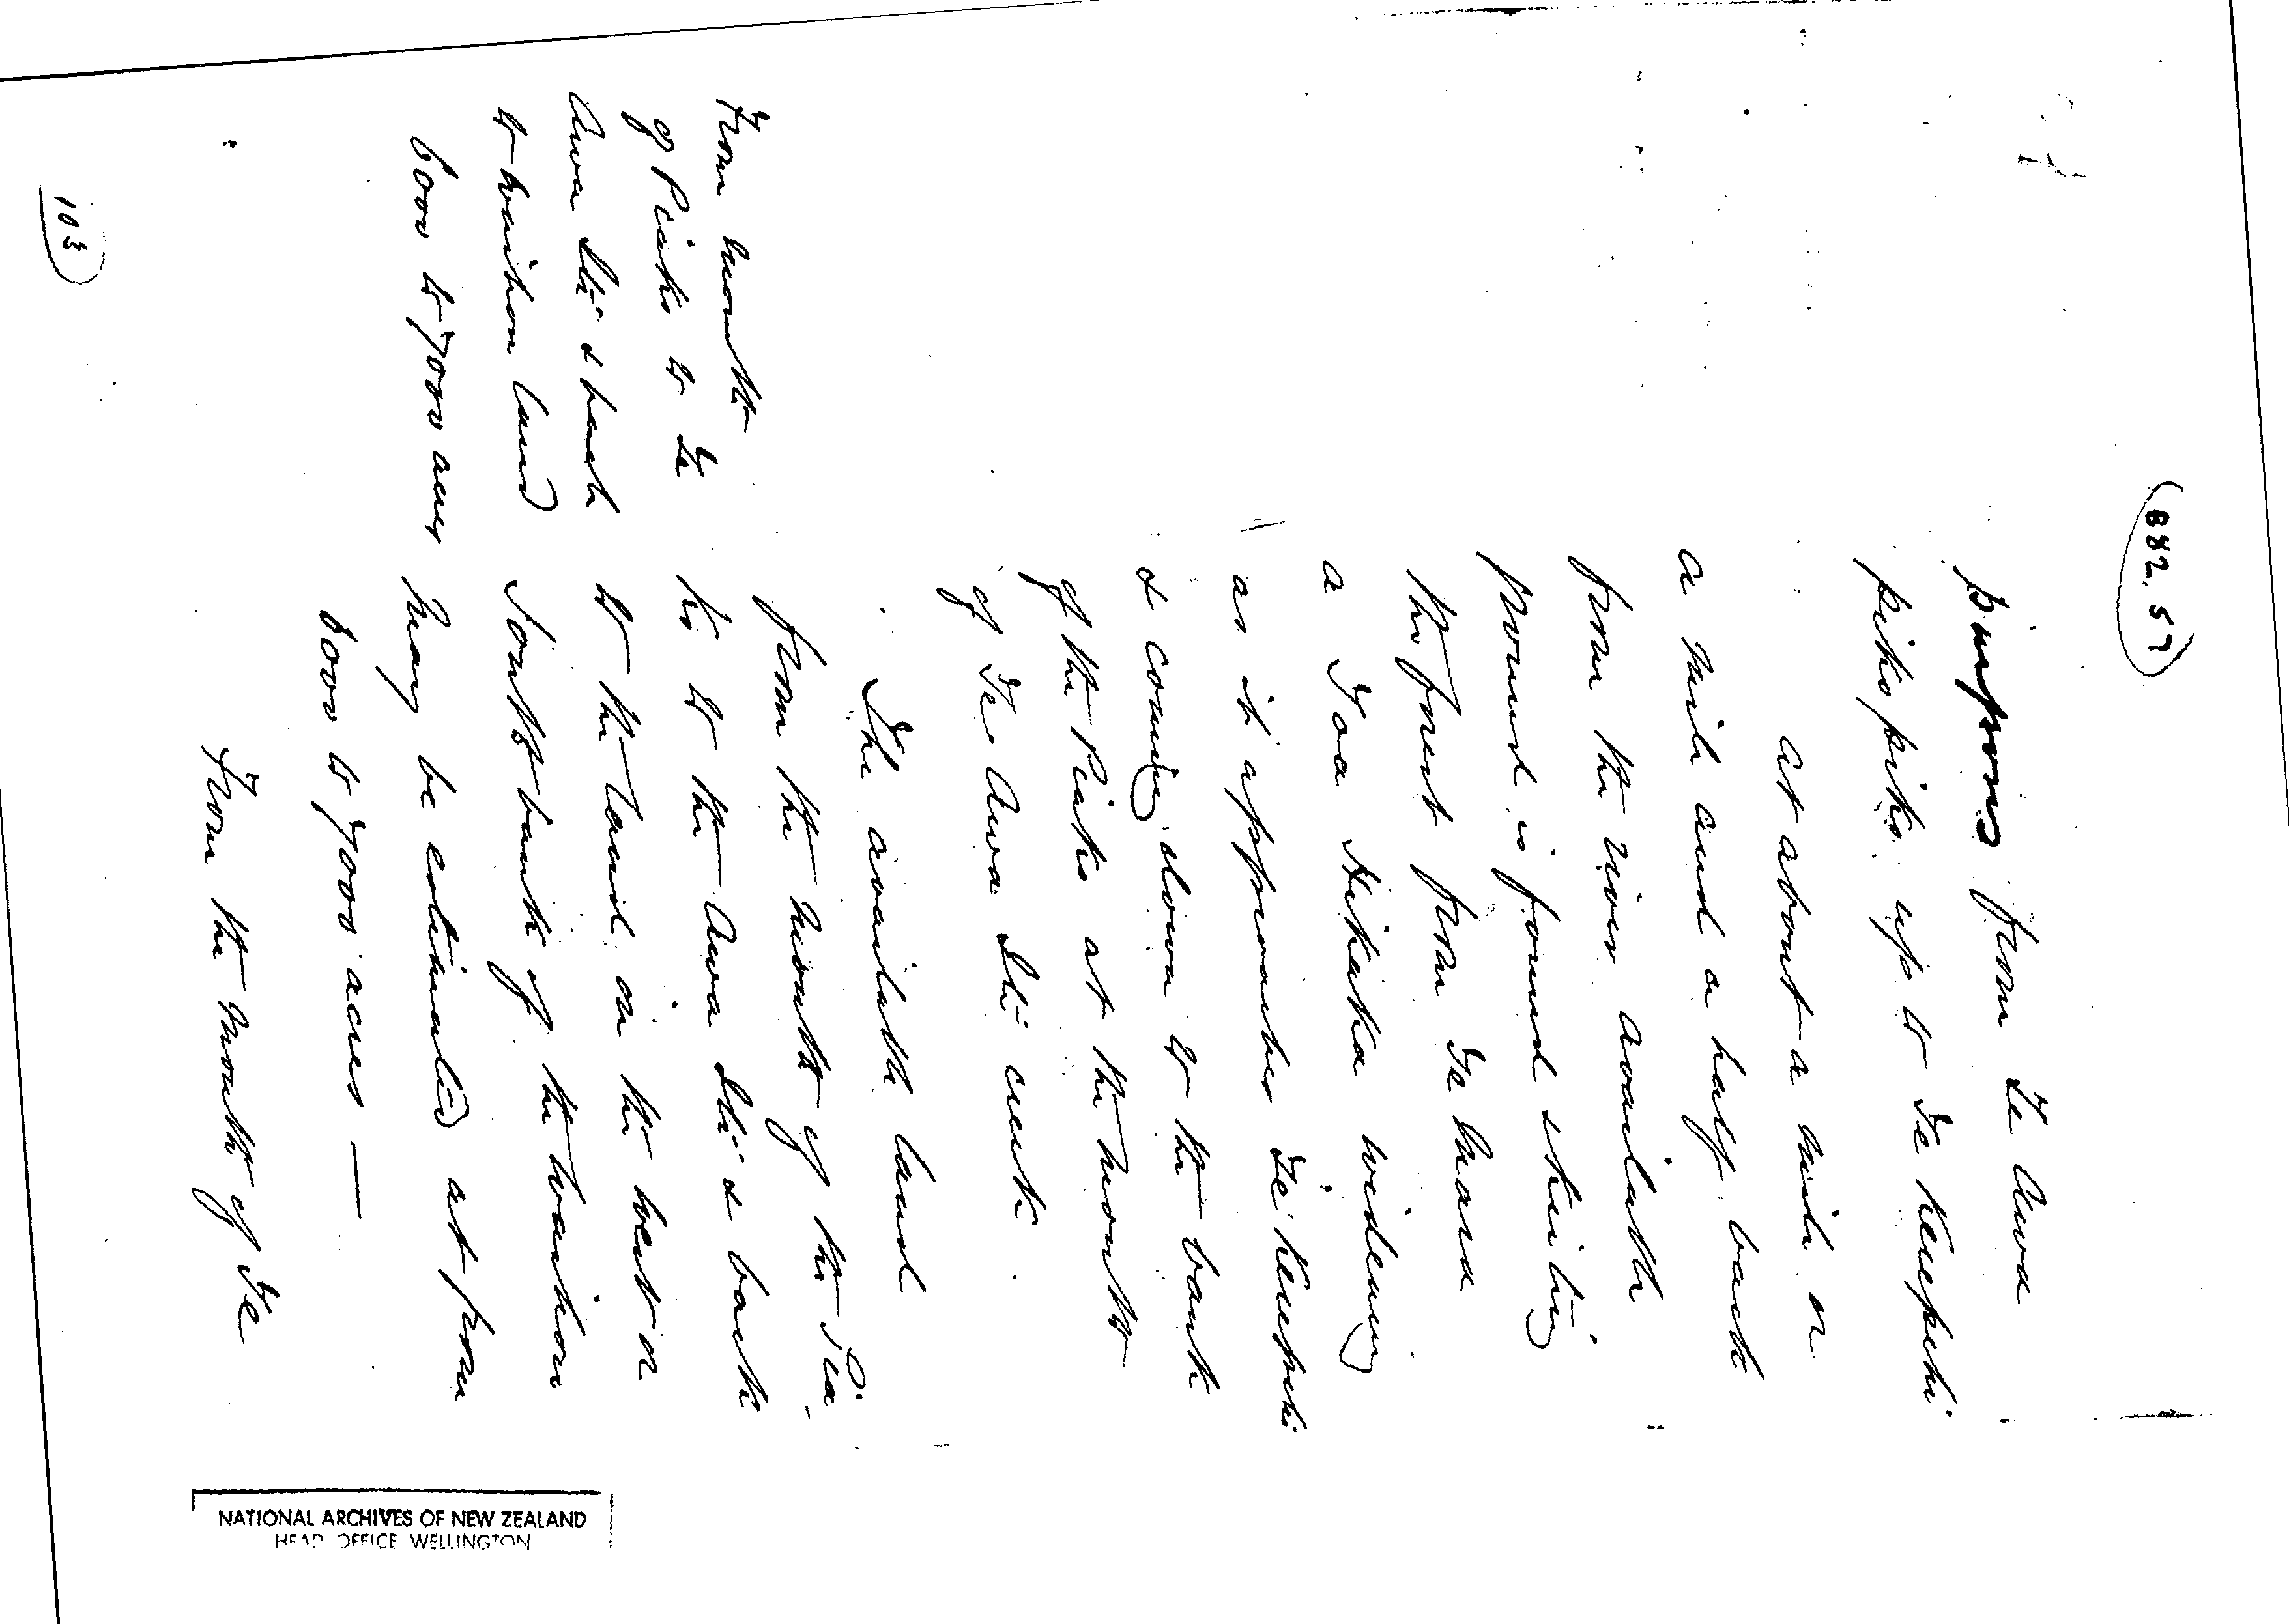 (882.57)
purposes from Te Awa
pikopiko up to Te Kerepehi
at about a mile or
a mile and a half back
from the river available
ground is found skirting
the forest from Te
a Toa Kikatea widening
as it approaches Te Kerepehi
& coming down to the bank
of the Piako at the mouth
of Te Awa Iti creek
The available land
from the mouth of the Pia-
ko to the Awa Iti & back
to the land on the west or
South bank of the Waitoa
may be estimated at from
6000 to 7000 acres —
From the mouth of Te
From mouth
of Piako to Te
Awa Iti & back
to land
6000 to 7000 acres
103
NATIONAL ARCHIVES OF NEW ZEALAND
HEAD OFFICE WELLINGTON